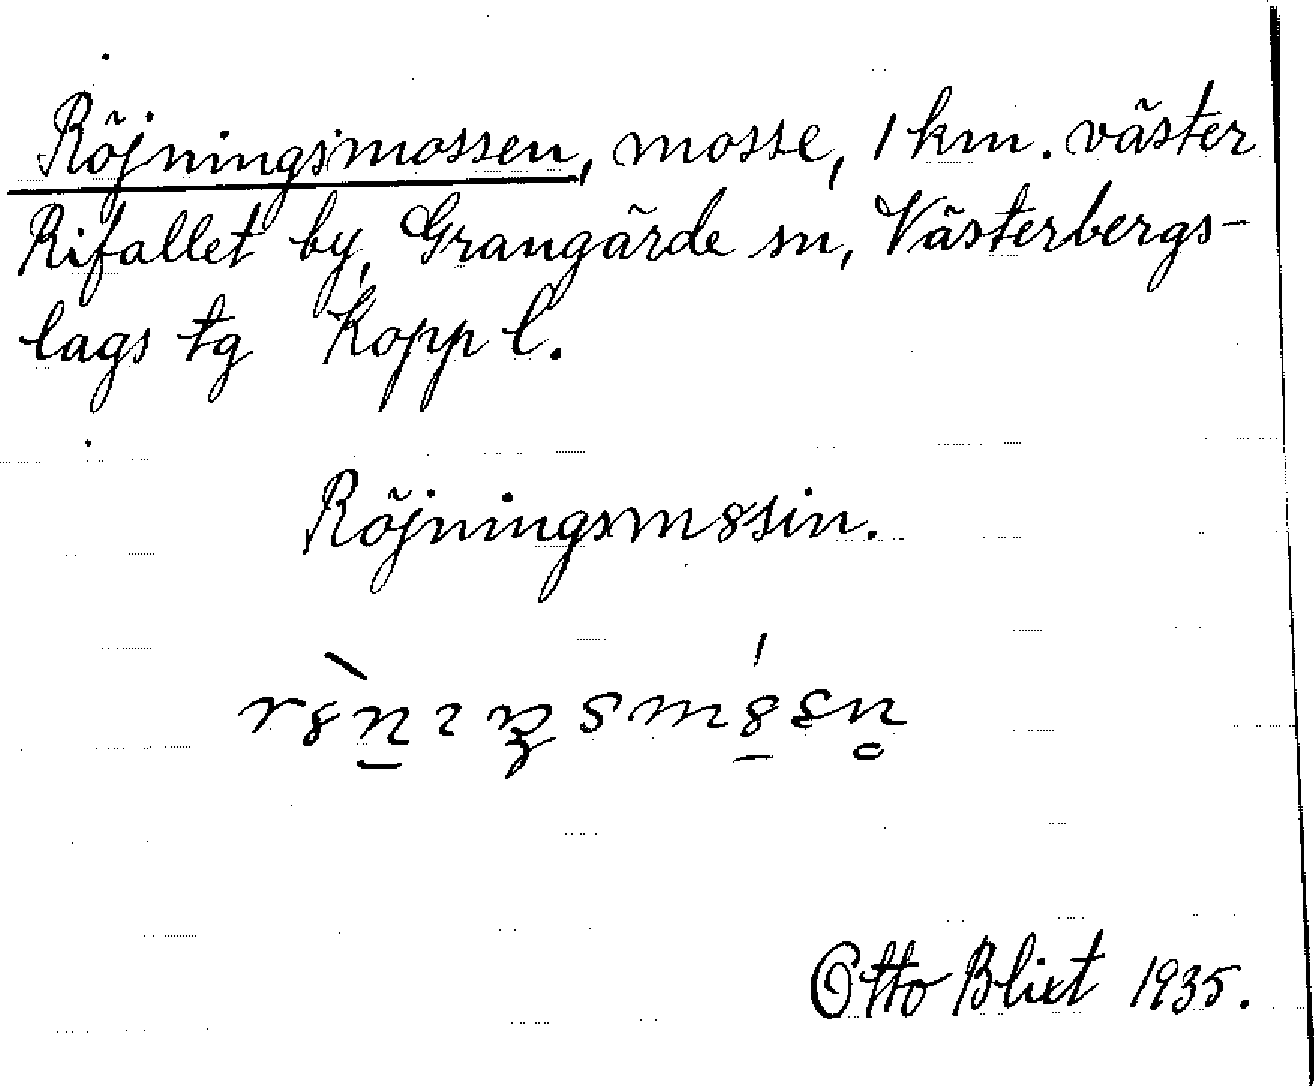 Röjningsmossen, mosse, 1 km. väster
Rifallet by, Grangärde sn, Västerbergs-
lags tg Kopp l.
Röjningsm8sin.
Otto Blixt 1935.